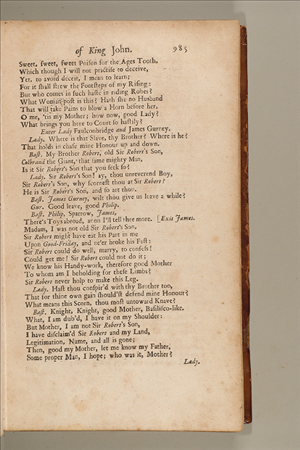 of King John. 985
Sweet, sweet, sweet Poison for the Ages Tooth,
Which though I will not practise to deceive,
Yet, to avoid deceit, I mean to learn;
For it shall strew the Footsteps of my Rising:
But who comes in such haste in riding Robes?
What Woman-post is this? Hath she no Husband
That will take Pains to blow a Horn before her,
O me, 'tis my Mother; how now, good Lady?
What brings you here to Court so hastily?
Enter Lady Faulconbridge and James Gurney.
Lady. Where is that Slave, thy Brother? Where is he?
That holds in chase mine Honour up and down.
Bast. My Brother Robert, old Sir Robert's Son,
Colbrand the Giant, that same mighty Man,
Is it Sir Robert's Son that you seek so?
Lady. Sir Robert's Son? ay, thou unreverend Boy,
Sir Robert's Son, why scornest thou at Sir Robert?
He is Sir Robert's Son, and so art thou.
Bast. James Gurney, wilt thou give us leave a while?
Gur. Good leave, good Philip.
Bast. Philip, Sparrow, James,
There's Toys abroad, anon I'll tell thee more. [Exit James.
Madam, I was not old Sir Robert's Son,
Sir Robert might have eat his Part in me
Upon Good-Friday, and ne'er broke his Fast:
Sir Robert could do well, marry, to confess!
Could get me! Sir Robert could not do it;
We know his Handy-work, therefore good Mother
To whom am I beholding for these Limbs?
Sir Robert never help to make this Leg.
Lady. Hast thou conspir'd with thy Brother too,
That for thine own gain should'st defend mine Honour?
What means this Scorn, thou most untoward Knave?
Bast. Knight, Knight, good Mother, Basilisco-like.
What, I am dub'd, I have it on my Shoulder:
But Mother, I am not Sir Robert's Son,
I have disclaim'd Sir Robert and my Land,
Legitimation, Name, and all is gone;
Then, good my Mother, let me know my Father,
Some proper Man, I hope; who was it, Mother?
Lady.